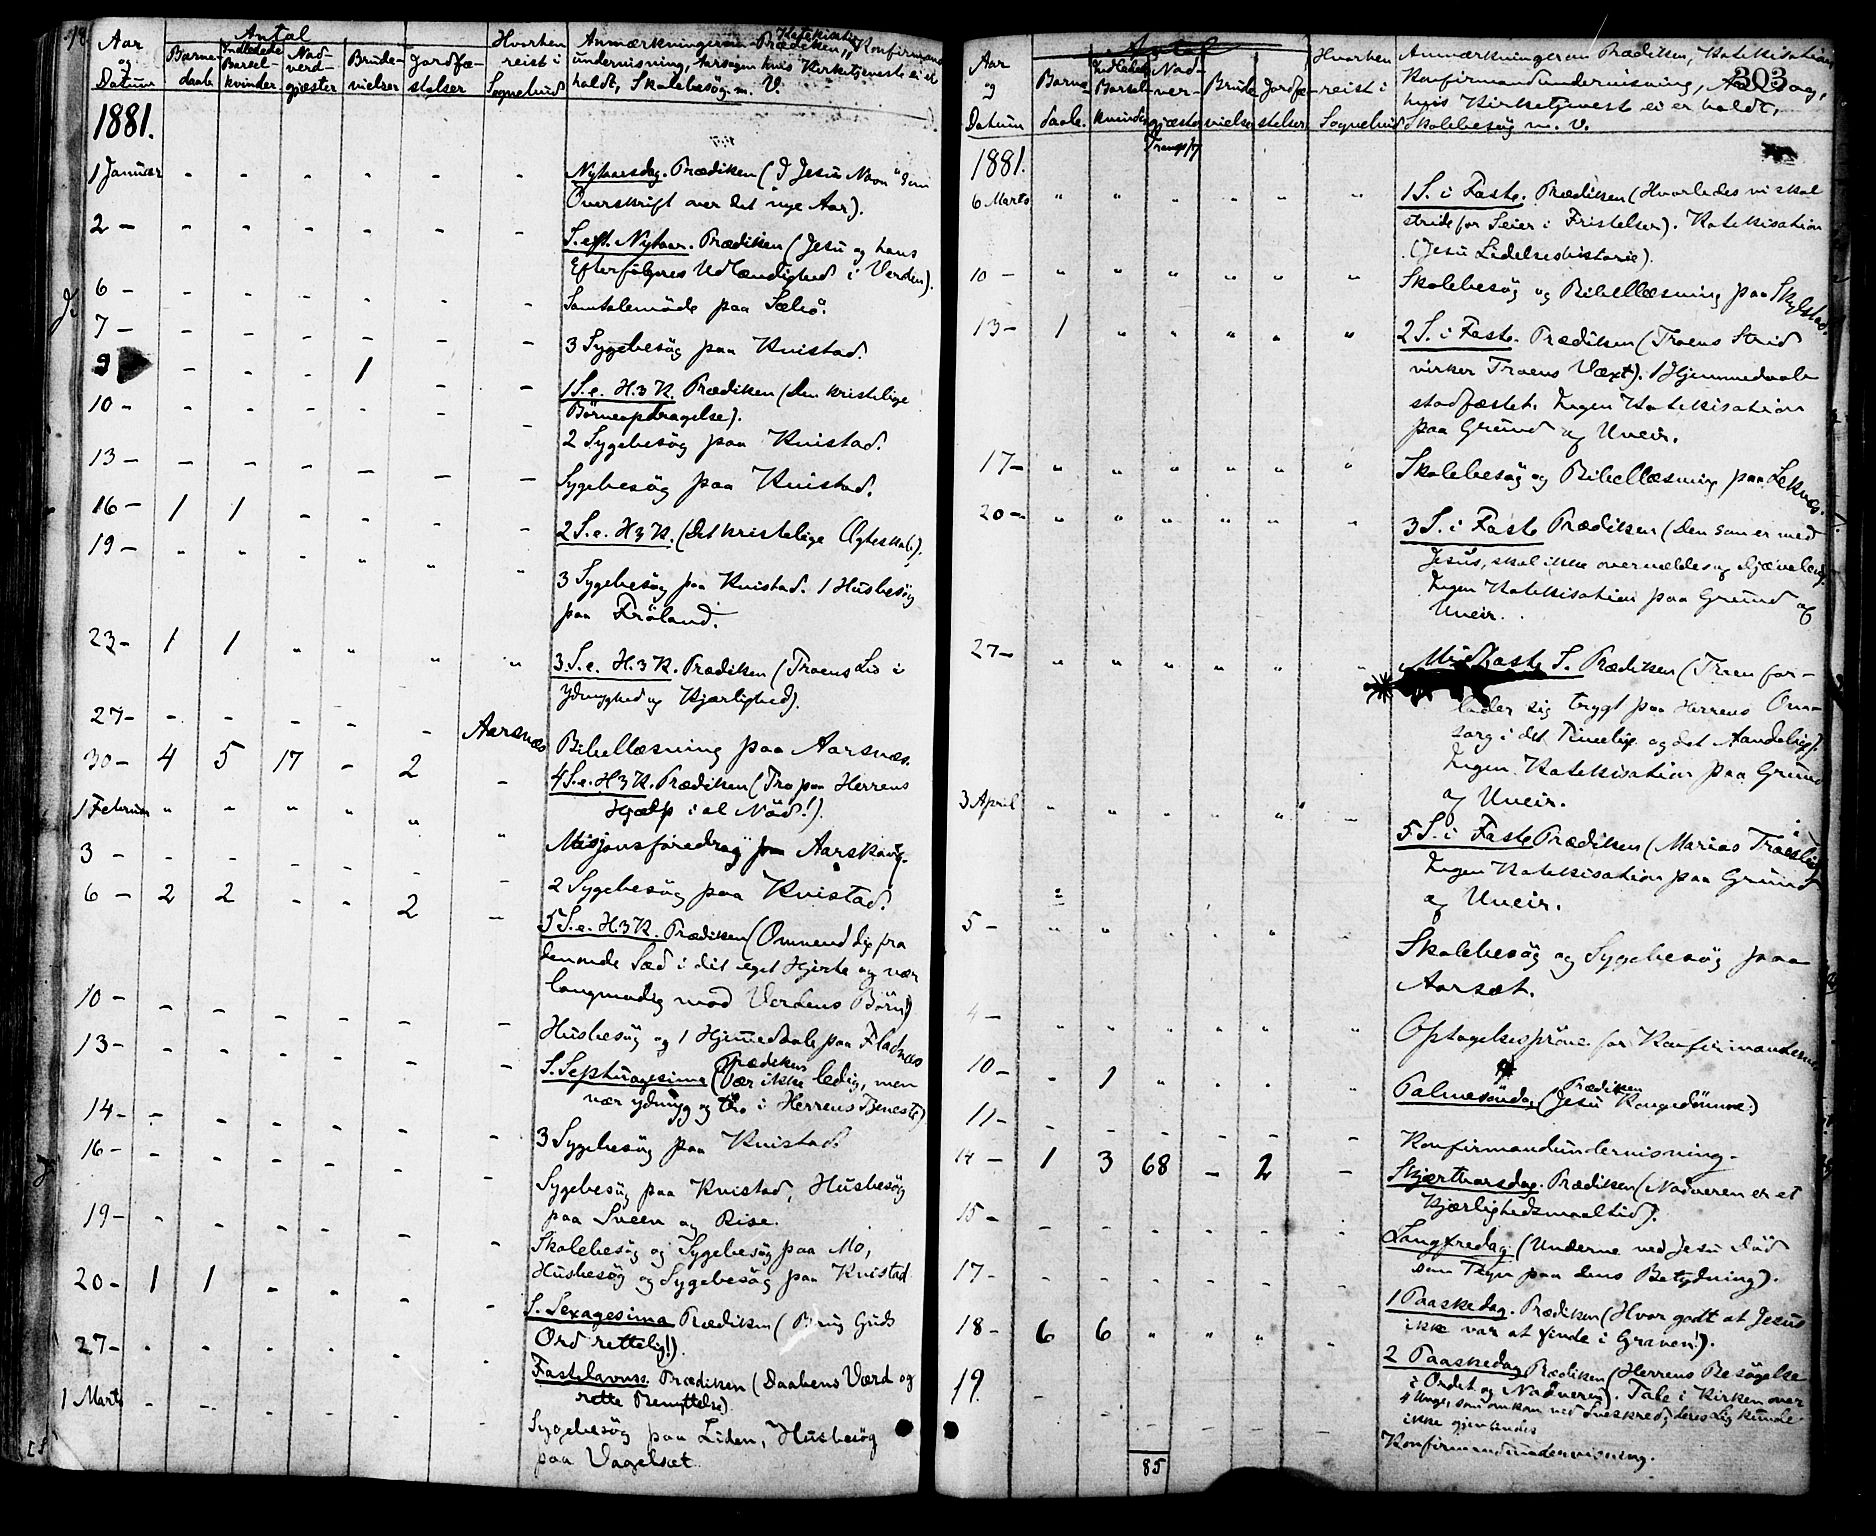 Aar og Datum
Antal
Barnedaab
Indledede Barselkvinder
Nadverdgjæster
Brudevielser
Jordfæstelser
Hvorhen reist i Sognebud
Anmærkninger om Prædiken, Katekisation, Konfirmand
undervisning, Aarsagen hvis Kirketjeneste ei er
holdt, Skolebesøg m. V.
1881.
1 Januar - - - - - - Nytaarsdag. Prædiken (I Jesu Navn som
Overskrift over det nye Aar).
2 - - - - - - - S. eft. Nytaar. Prædiken (Jesu og hans
Efterfølgeres Udlændighed i Verden).
6 - - - - - - - Samtalemøde paa Sæbø.
7 - - - - - - - 3 Sygebesøg paa Kvistad.
9 - - - - 1 - - 1 S. e. H. 3 K. Prædiken (Den kristelige
Børneopdragelse).
10 - - - - - - - 2 Sygebesøg paa Kvistad.
13 - - - - - - - Sygebesøg paa Kvistad.
16 - 1 1 - - - - 2 S. e. H 3 K. (Det kristelige Ægteskab).
19 - " " " " " " 3 Sygebesøg paa Kvistad. 1 Husbesøg
paa Frøland.
23 - 1 1 " " " " 3 S. e. H. 3 K. Prædiken (Troens Liv i
Ydmyghed og Kjærlighed).
27 - - - - - - Aarsnæs Bibellæsning paa Aarsnæs.
30 - 4 5 17 - 2 - 4 S. e. H 3 K. Prædiken (Tro paa Herrens
Hjælp i al Nød!).
1 Februar " - " " " " Misjonsforedrag paa Aarskaug.
3 - - - - - - - 2 Sygebesøg paa Kvistad.
6 - 2 2 - - 2 - 5 S. e. H. 3 K. Prædiken (Omvend dig fra
den onde Sæd i dit eget Hjerte og vær
langmodig mod Verdens Børn)
10 - - - - - - - Husbesøg og 1 Hjemmedaab paa Fladnæs
13 - - - - - - - S. Septuagesima Prædiken (Vær ikke ledig, men
vær ydmyg og tro i Herrens Tjeneste)
14 - - - - - - - 3 Sygebesøg paa Kvistad.
16 - - - - - - - Sygebesøg paa Kvistad, Husbesøg
paa Sveen og Rise.
19 - - - - - - - Skolebesøg og Sygebesøg paa Mo,
Husbesøg og Sygebesøg paa Kvistad
20 - 1 1 - - - - S. Sexagesima Prædiken (Brug Guds
Ord rettelig!).
27 - - - - - - - Fastelavnss. Prædiken (Daabens Værd og
rette Benyttelse)
1 Marts - - - - - - Sygebesøg paa Liden, Husbesøg
paa Vagelsæt.
303
Aar og Datum
Antal
Barnedaab.
Indledede Barselkvinder
Nadvergjæster
Brudevielser
Jordfæstelser
Hvorhen reist i Sognebud
Anmærkninger om Prædiken, Katekisation,
Konfirmandundervisning, Aarsag,
hvis Kirketjenest ei er holdt,
Skolebesøg m. V.
1881.
Transp. 17
6 Marts " " " " " " 1 S. i Faste. Prædiken (Hvorledes vi skal
stride for Seier i Fristelser). Katekisation
(Jesu Lidelseshistorie).
10 - " " " " " " Skolebesøg og Bibellæsning paa Skylstad.
13 - 1 " " " " " 2 S. i Faste. Prædiken (Troens Strid
virker Troens Væxt). 1 Hjemmedaab
stadfæstet. Ingen Katekisation
paa Grund af Uveir.
17 - " " " " " " Skolebesøg og Bibellæsning paa Leknæs.
20 - " " " " " " 3 S. i Faste Prædiken (Den som er med
Jesus, skal ikke overvældes af Djævelen).
Ingen Katekisation paa Grund af
Uveir.
27 - " " " " " " Midfaste S. Prædiken (Troen for-
lader sig trygt paa Herrens Om-
sorg i det Timelige og det Aandelige).
Ingen Katekisation paa Grund
af Uveir.
3 April " " " " " - 5 S. i Faste Prædiken (Marias Troesliv)
Ingen Katekisation paa Grund
af Uveir.
5 - " " " " " " Skolebesøg og Sygebesøg paa
Aarsæt.
4 - " " " " " " Optagelsesprøve for Konfirmanderne
10 - - 1 " " " " Palmesøndag Prædiken (Jesu Kongedømme.)
11 - - - - - - - Konfirmandundervisning.
14 - 1 3 68 - 2 - Skjærthorsdag. Prædiken (Nadveren er et
Kjærlighedsmaaltid).
15 - - - - - - - Langfredag (Underne ved Jesu Død
som Tegn paa dens Betydning).
17 - - - - - - - 1 Paaskedag. Prædiken (Hvor godt at Jesus
ikke var at finde i Graven!).
18 - 6 6 " " " - 2 Paaskedag Prædiken (Herrens Besøgelse
i Ordet og Nadveren). Tale i Kirken over
4 Unge, som omkom ved Sneskred, deres Lig kunde
ikke gjenfindes
19. - - - - - - Konfirmandundervisning.
85